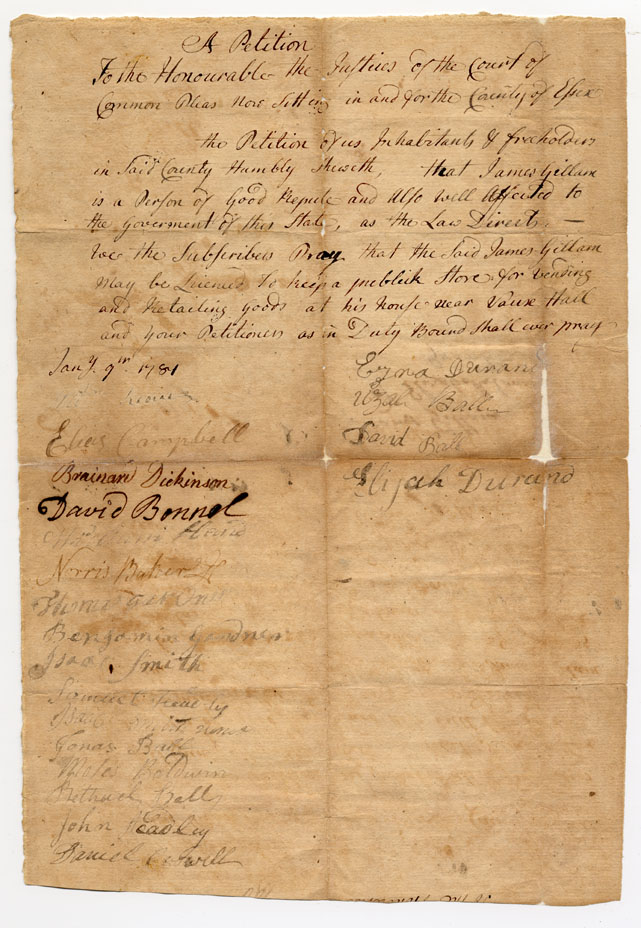 A Petition
To the Honourable the Justices of the Court of
Common Pleas Now Sitting in and for the County of Essex
the Petition of us Inhabitants & freeholders
in Said County Humbly Sheweth, that James Gillam
is a Person of Good Repute and Also Well Affected to
the Goverment of this State, as the Law Directs, —
We the Subscribers Pray that the Said James Gillam
may be Licened to keep a publick Store for vending
and Retailing goods at his house near Vause Hall
and your Petitioners as in Duty Bound Shall ever pray
Jany. 9th 1781
Ezra Durand
Uzal Ball
Elias Campbell
David Ball
Brainard Dickinson
Elijah Durand
David Bonnel
Norris Baker
Benjamin Gardner
Isaac Smith
Samuel Headly
Jonas Ball
Moses Baldwin
Bethuel Ball
John Headley
Daniel